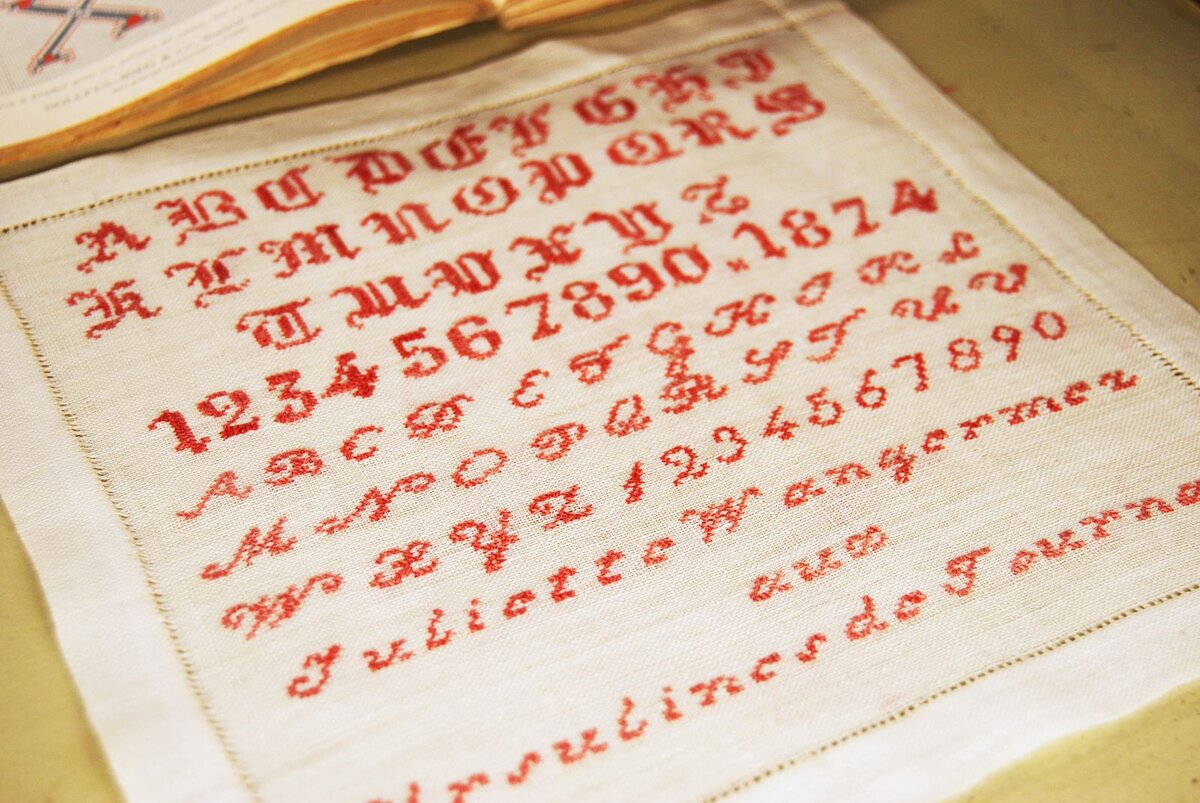 A B C D E F G H I
K L M N O P Q R S
T U V X Y Z
1234567890 × 1874
A B C D E F G H I K L
M N O P Q R S T U V
W X Y Z 1234567890
Juliette Wangermez
aux
Ursulines de Tourna